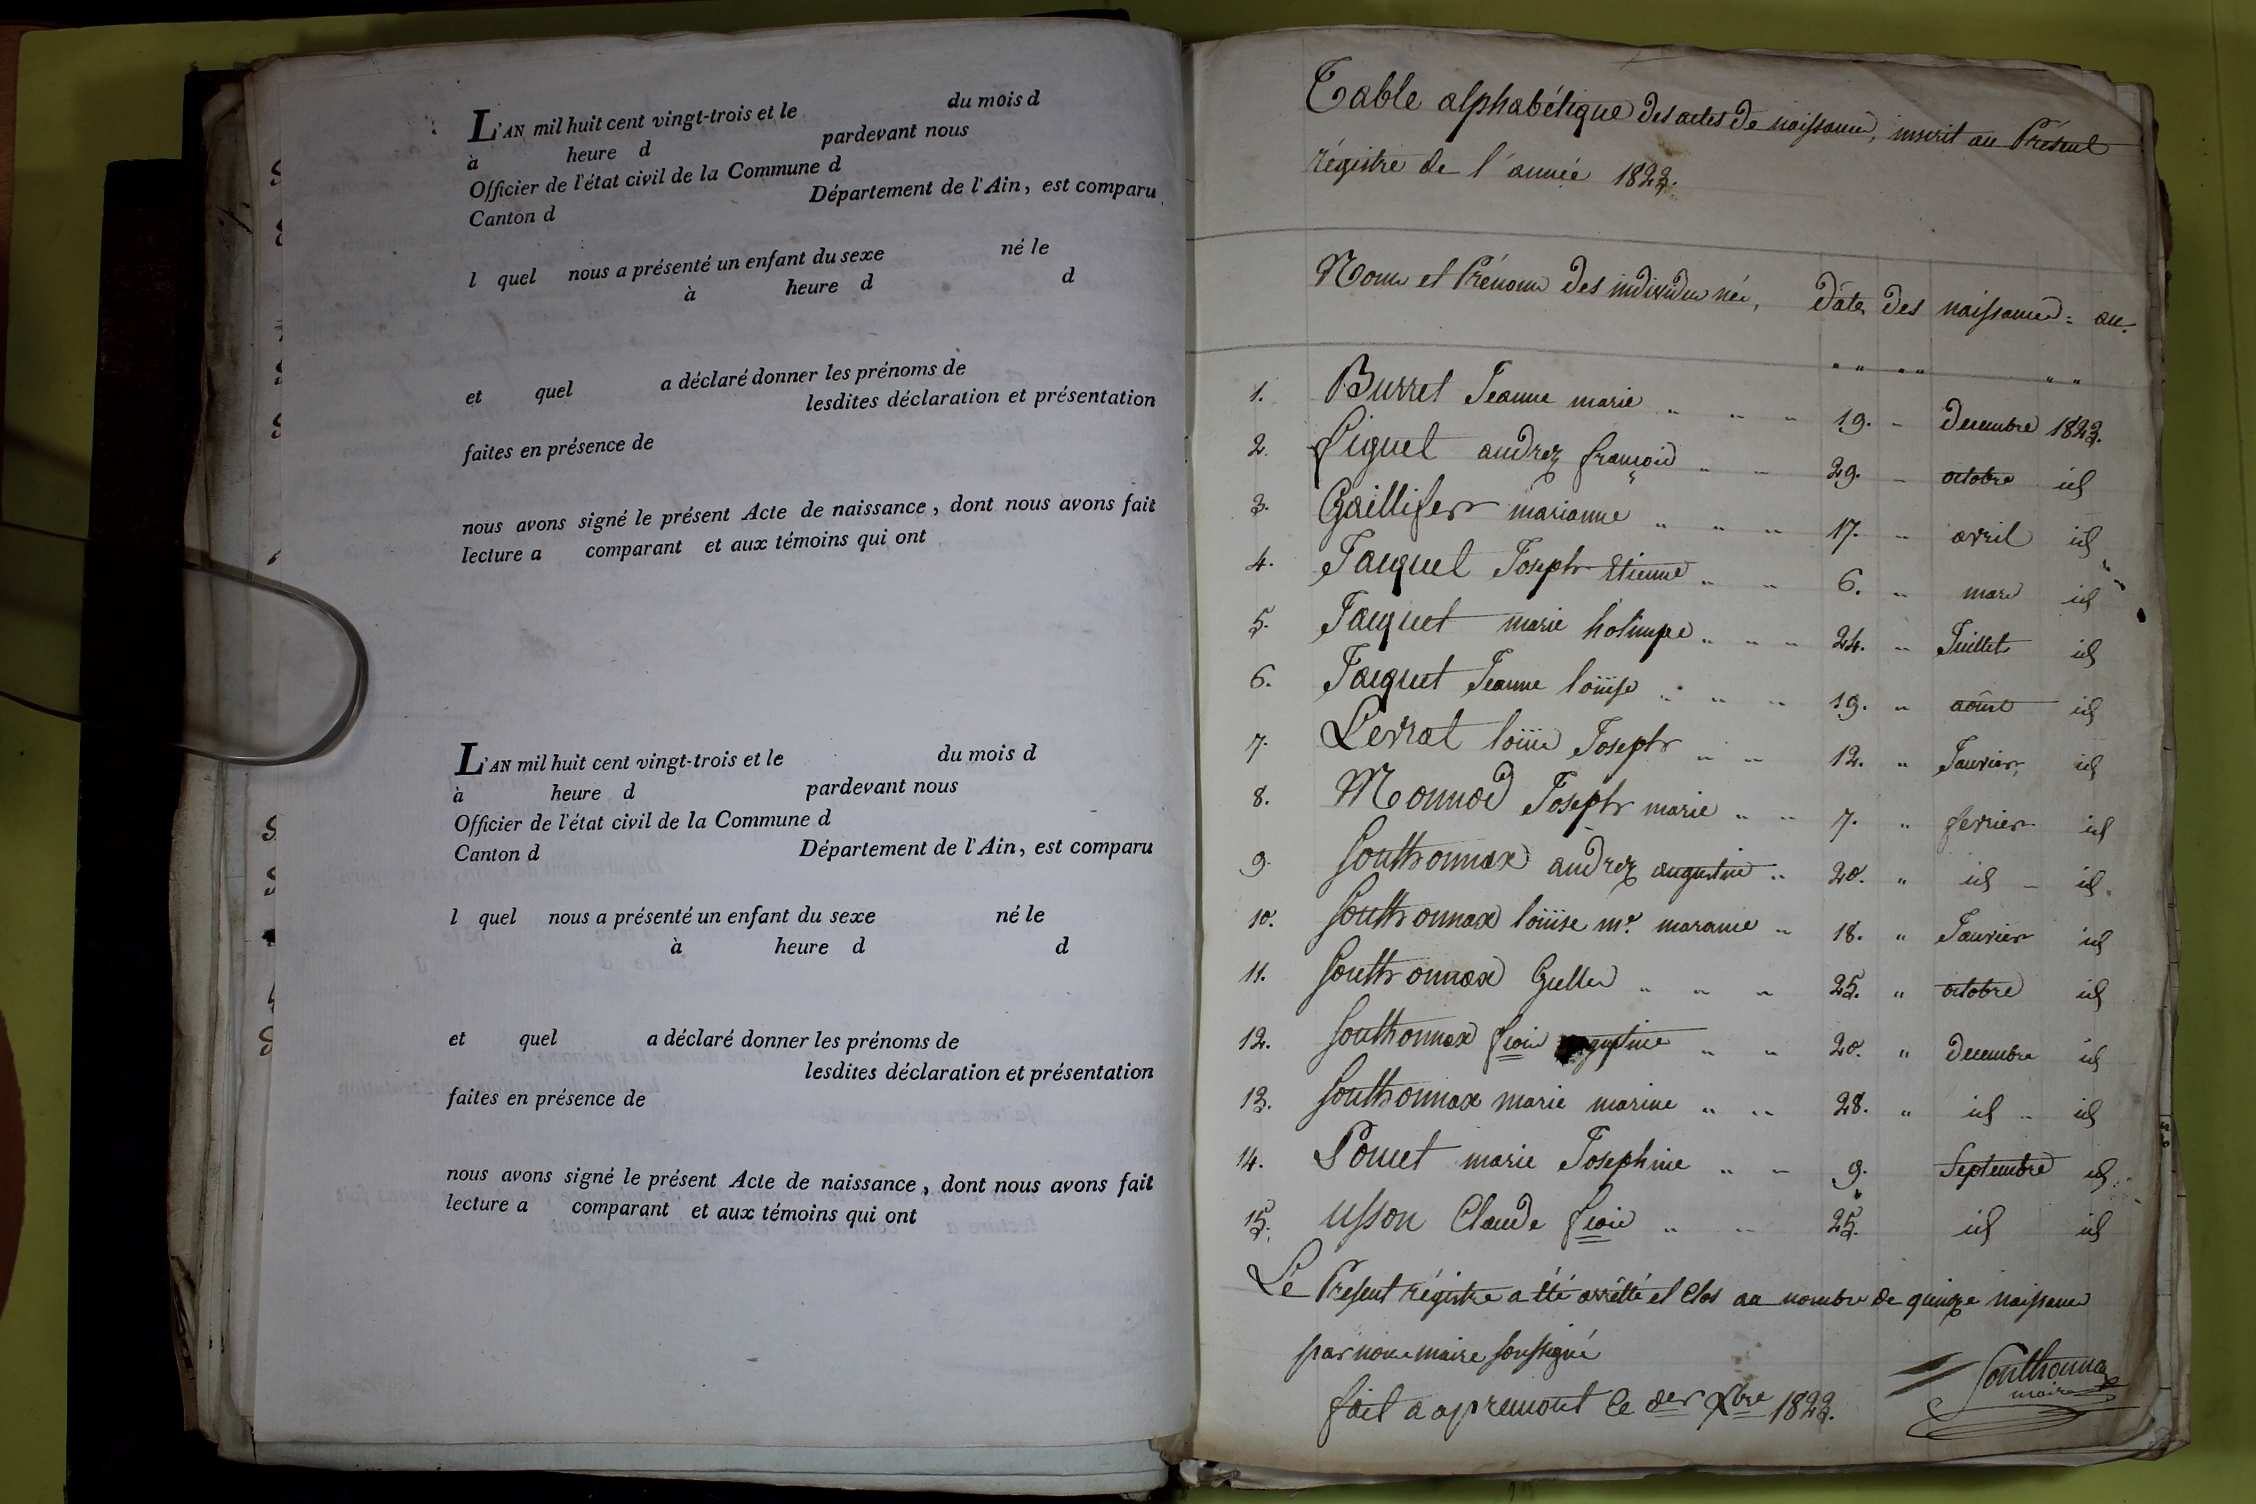 L'AN mil huit cent vingt-trois et le du mois d
à heure d pardevant nous
Officier de l'état civil de la Commune d
Canton d Département de l'Ain, est comparu
l quel nous a présenté un enfant du sexe né le
à heure d d
et quel a déclaré donner les prénoms de
lesdites déclaration et présentation
faites en présence de
nous avons signé le présent Acte de naissance, dont nous avons fait
lecture a comparant et aux témoins qui ont
L'AN mil huit cent vingt-trois et le du mois d
à heure d pardevant nous
Officier de l'état civil de la Commune d
Canton d Département de l'Ain, est comparu
l quel nous a présenté un enfant du sexe né le
à heure d d
et quel a déclaré donner les prénoms de
lesdites déclaration et présentation
faites en présence de
nous avons signé le présent Acte de naissance, dont nous avons fait
lecture a comparant et aux témoins qui ont
Table alphabétique des actes de naissance, inscrit au Présent
régistre de l'année 1823.
Noms et Prénoms des individus nés, dates des naissances = an.
1. Burret Jeanne marie " " " 19. " decembre 1823.
2. Figuet andrez françois " " 29. " octobre id
3. Gaillifer marianne " " " 17. " avril id
4. Jacquet Joseph Etienne " " 6. " mars id
5. Jacquet marie holimpe " " " 24. " Juillet id
6. Jacquet Jeanne louise " " " 19. " août id
7. Levrat louis Joseph " " 12. " Janvier id
8. Monnod Joseph marie " " 7. " fevrier id
9. Southonnax andrez augustin " 20. " id - id.
10. Southonnax louise me. maranie " 18. " Janvier id
11. Southonnax " " " 25. " octobre id
12. Southonnax fcois " " 20. " decembre id
13. Southonnax marie marine " " 28. " id " id
14. Poncet marie Josephine " " 9. Septembre id
15. usson Claude fcois " " 25. id id
Le Présent régistre a été arrêtté et Clos au nombre de quinze naissances
par nous maire soussigné
fait a apremont le der Xbre 1823.
Southonnax
maire